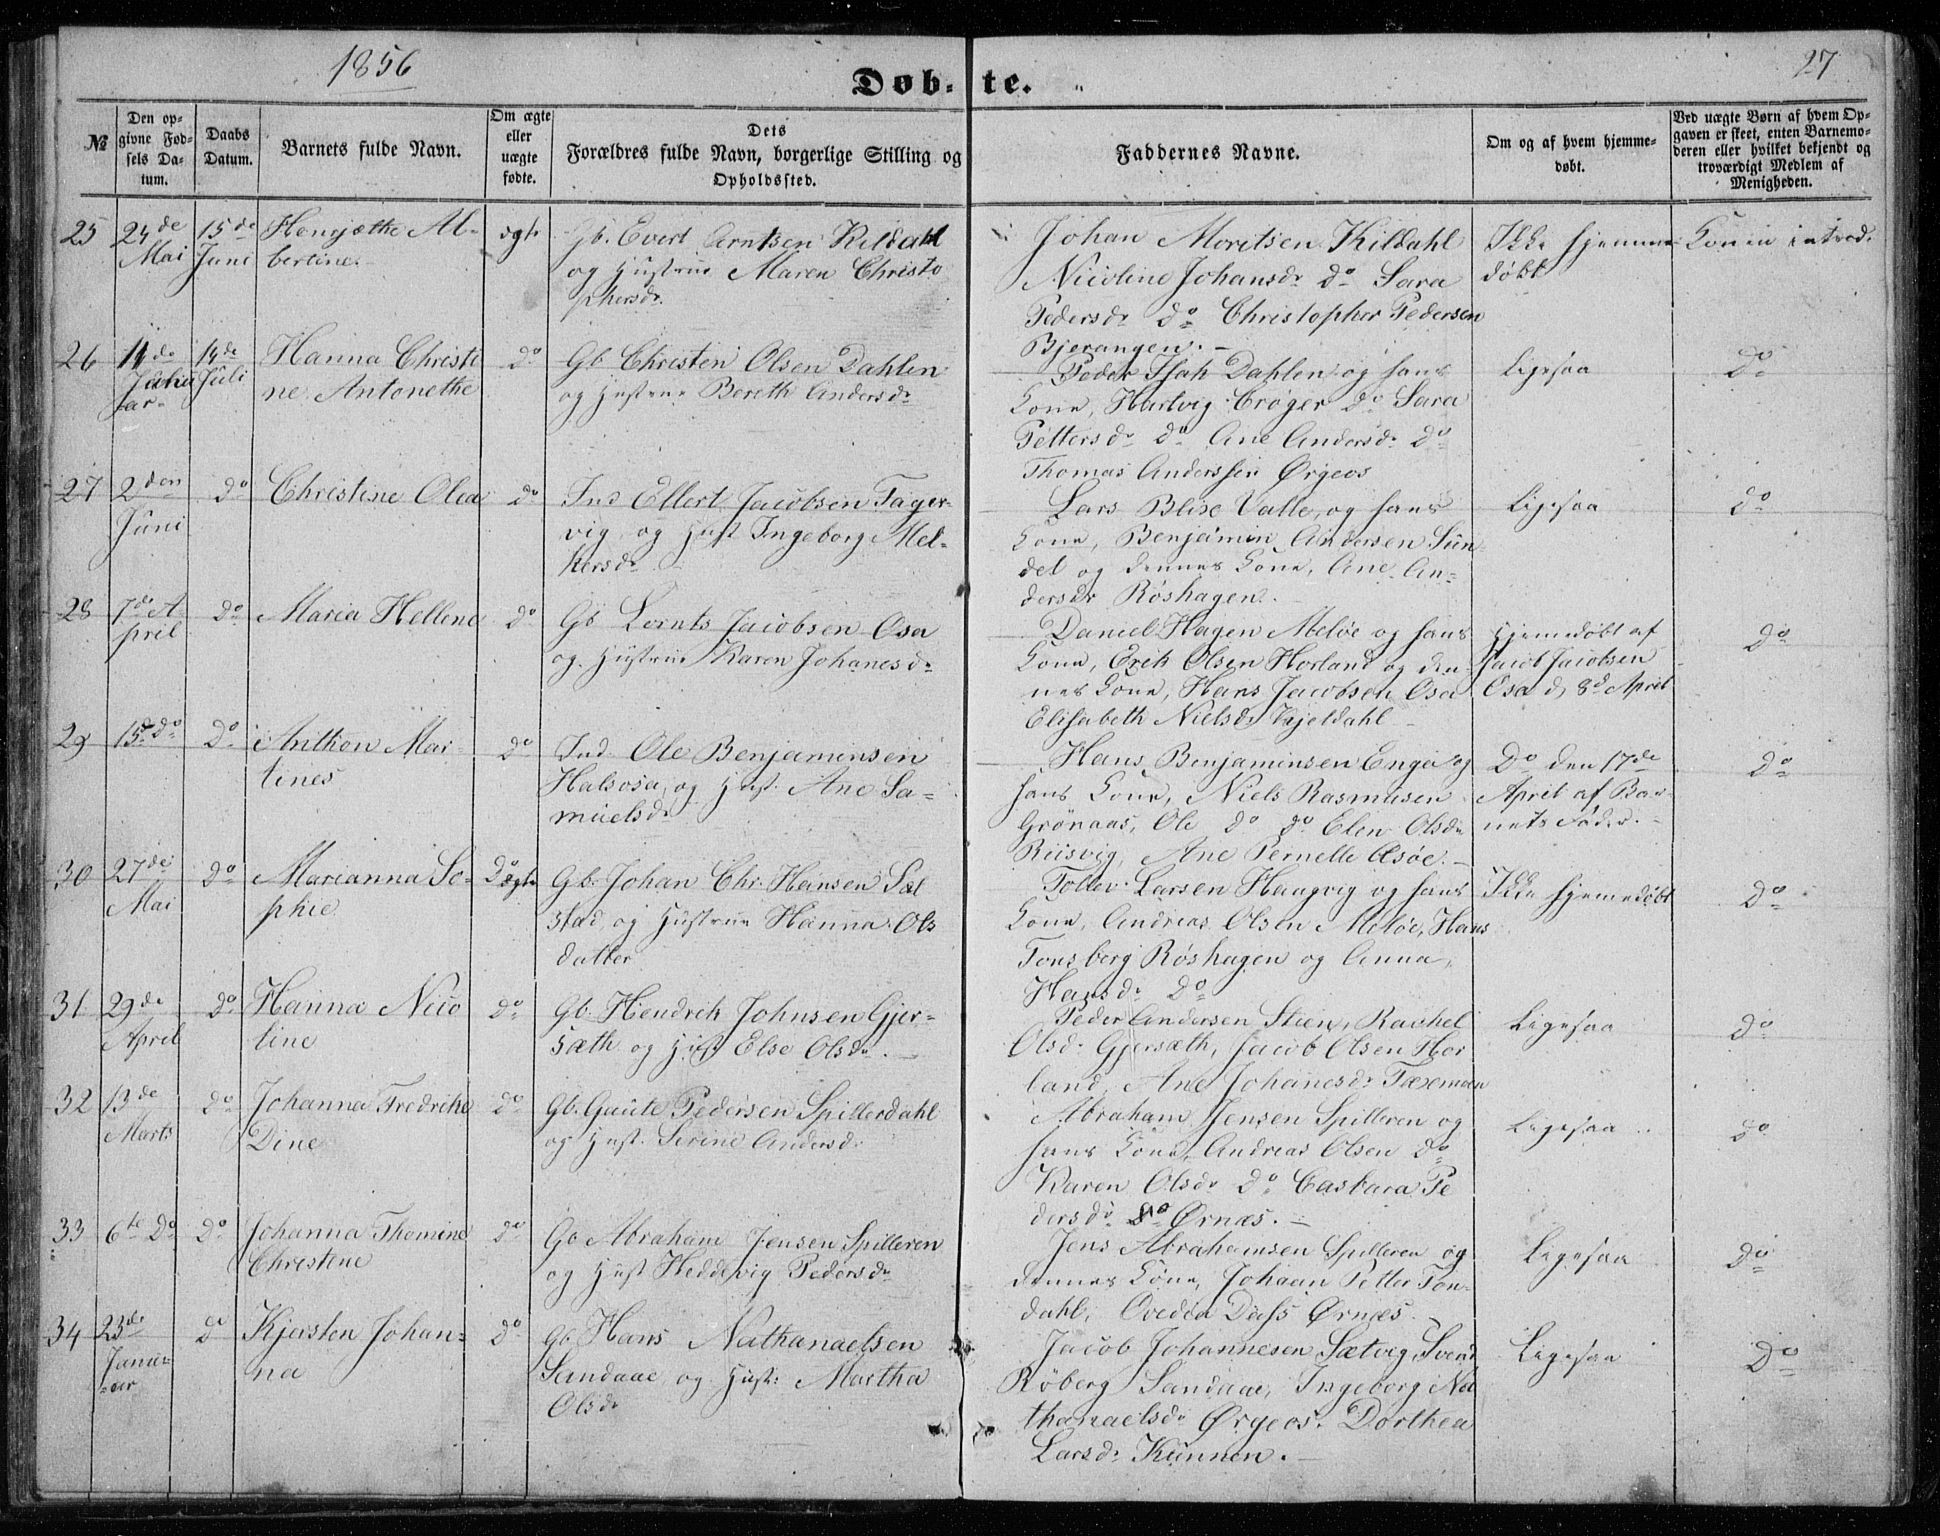 1856
27
Døb- te.
№
Den op-
givne Fød-
sels Da-
tum.
Daabs
Datum.
Barnets fulde Navn.
Om ægte
eller
uægte
fødte.
Dets
Forældres fulde Navn, borgerlige Stilling og
Opholdssted.
Faddernes Navne.
Om og af hvem hjemme-
døbt.
Ved uægte Børn af hvem Op-
gaven er skeet, enten Barnemo-
deren eller hvilket bekjendt og
troværdigt Medlem af
Menigheden.
25 24de Mai 15de Juni
Henjæthe Al-
bertine.
ægte
Gb. Evert Arntsen Kildahl
og Hustrue Maren Christo
phersdr.
Johan Moritsen Kildahl
Nicoline Johansdr do Sara
Pedersdr do Christopher Pedersen
Bjerangen. -
Ikke hjemme
døbt
Konen introd.
26 11de Januar 14de Juli
Hanna Christi
ne Antonethe
do
Gb Christen Olsen Dahlen
og Hustrue Bereth Andersdr
Peder Isak Dahlen og hans
Kone, Hartvig Crøger do Sara
Pettersdr do Ane Andersdr do
Thomas Anderssen Ørgeos
Ligesaa
do
27 2den Juni do
Christine Olea
do
Ind Ellert Jacobsen Tager-
vig og Hust Ingeborg Mel-
kersdr
Lars Blise Valle, og hans
Kone, Benjamin Andersen Sun-
det og dennes Kone, Ane An-
dersdr Røshagen. -
Ligesaa
do
28 7de A-
pril do
Maria Hellene
do
Gb Lornts Jacobsen Osa
og Hustrue Karen Johanesdr
Daniel Hagen Meløe og hans
Kone, Erik Olsen Horland og den-
nes Kone, Hans Jacobsen Osa
Elisabeth Nielsdr Kjeldahl -
Hjemedøbt af
Jacob Jacobsen
Osa d. 8de April
do
29 15de do do
Anthon Mar-
tines
do
Ind. Ole Benjaminsen
Halsosa, og Hust. Ane Sa-
muelsdr
Hans Benjaminsen Enga og
hans Kone, Niels Rasmusen
Grønaas, Ole do do Elen Olsdr
Reisvig, Ane Pernelle Æsøe. -
Do den 17de
April af Bar-
nets Fader. -
do
30 27de Mai do
Marianna So-
phie
Do ægte
Gb. Johan Chr. Hansen Sæl
stad og Hustrue Hanna Ols
datter
Tollev Larsen Haagvig og hans
Kone, Andreas Olsen Meløe, Hans
Tonsberg Røshagen og Anna
Hansdr do
Ikke hjemedøbt
do
31 29de April do
Hanna Nico
line
do
Gb. Hendrik Johnsen Gjer-
sæth og Hust Else Olsdr. -
Peder Andersen Steen, Rachel
Olsdr Gjersæth, Jacob Olsen Hor
land, Ane Johanesdr
Ligesaa
do
32 13de Marts do
Johanna Fredrike
Dine
do
Gb. Gaute Pedersen Spillerdahl
og Hust. Serine Andersdr
Abraham Jensen Spilleren og
hans Kone, Andreas Olsen do
Karen Olsdr do Casbara Pe
dersdr do Ørnæs. -
Ligesaa
do
33 6te do do
Johanna Thomine
Christine
do
Gb Abraham Jensen Spilleren
og Hust Heddevig Pedersdr
Jens Abrahamsen Spilleren og
dennes Kone, Johan Petter Ton-
dahl, Ovedia Dass Ørnæs. -
Ligesaa
do
34 23de Janu-
ar do
Kjersten Johan-
na
do
Gb. Hans Nathanaelsen
Sandaae og Hust: Martha
Olsdr
Jacob Johannesen Sætvig, Svend
Røberg Sandaae, Ingeborg Na
thanaelsdr Ørgeos. Dorthea
Larsdr Kunnen. -
Ligesaa
Do